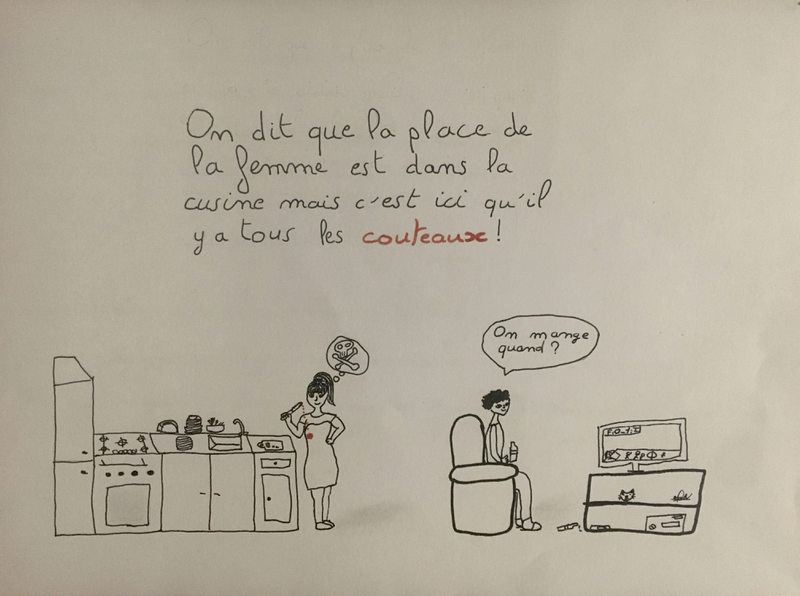 On dit que la place de
la femme est dans la
cusine mais c'est ici qu'il
y a tous les couteaux !
On mange
quand ?